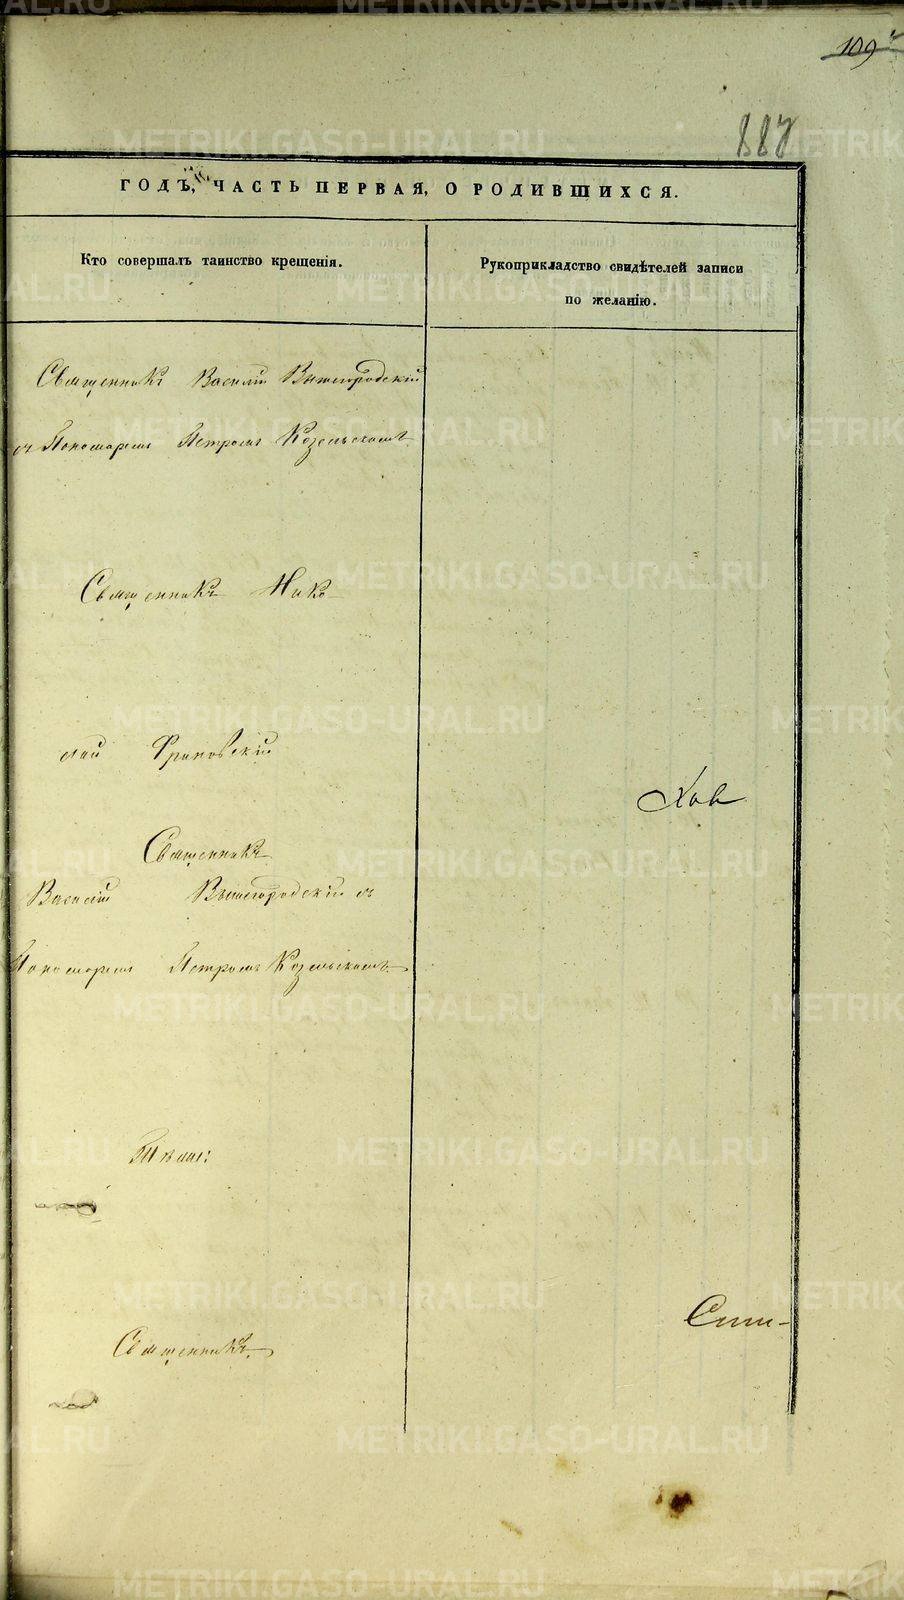 109
887
ГОДЪ, ЧАСТЬ ПЕРВАЯ, О РОДИВШИХСЯ.
Кто совершалъ таинство крещенія.
Рукоприкладство свидѣтелей записи
по желанію.
Священникъ Василій Вышегородскій
съ Пономаремъ Петромъ Козельскимъ
Священникъ Нико-
лай Франовскій
Священникъ
Василій Вышегородскій съ
Пономаремъ Петромъ Козельскимъ
Священникъ
METRIKI.GASO-URAL.RU